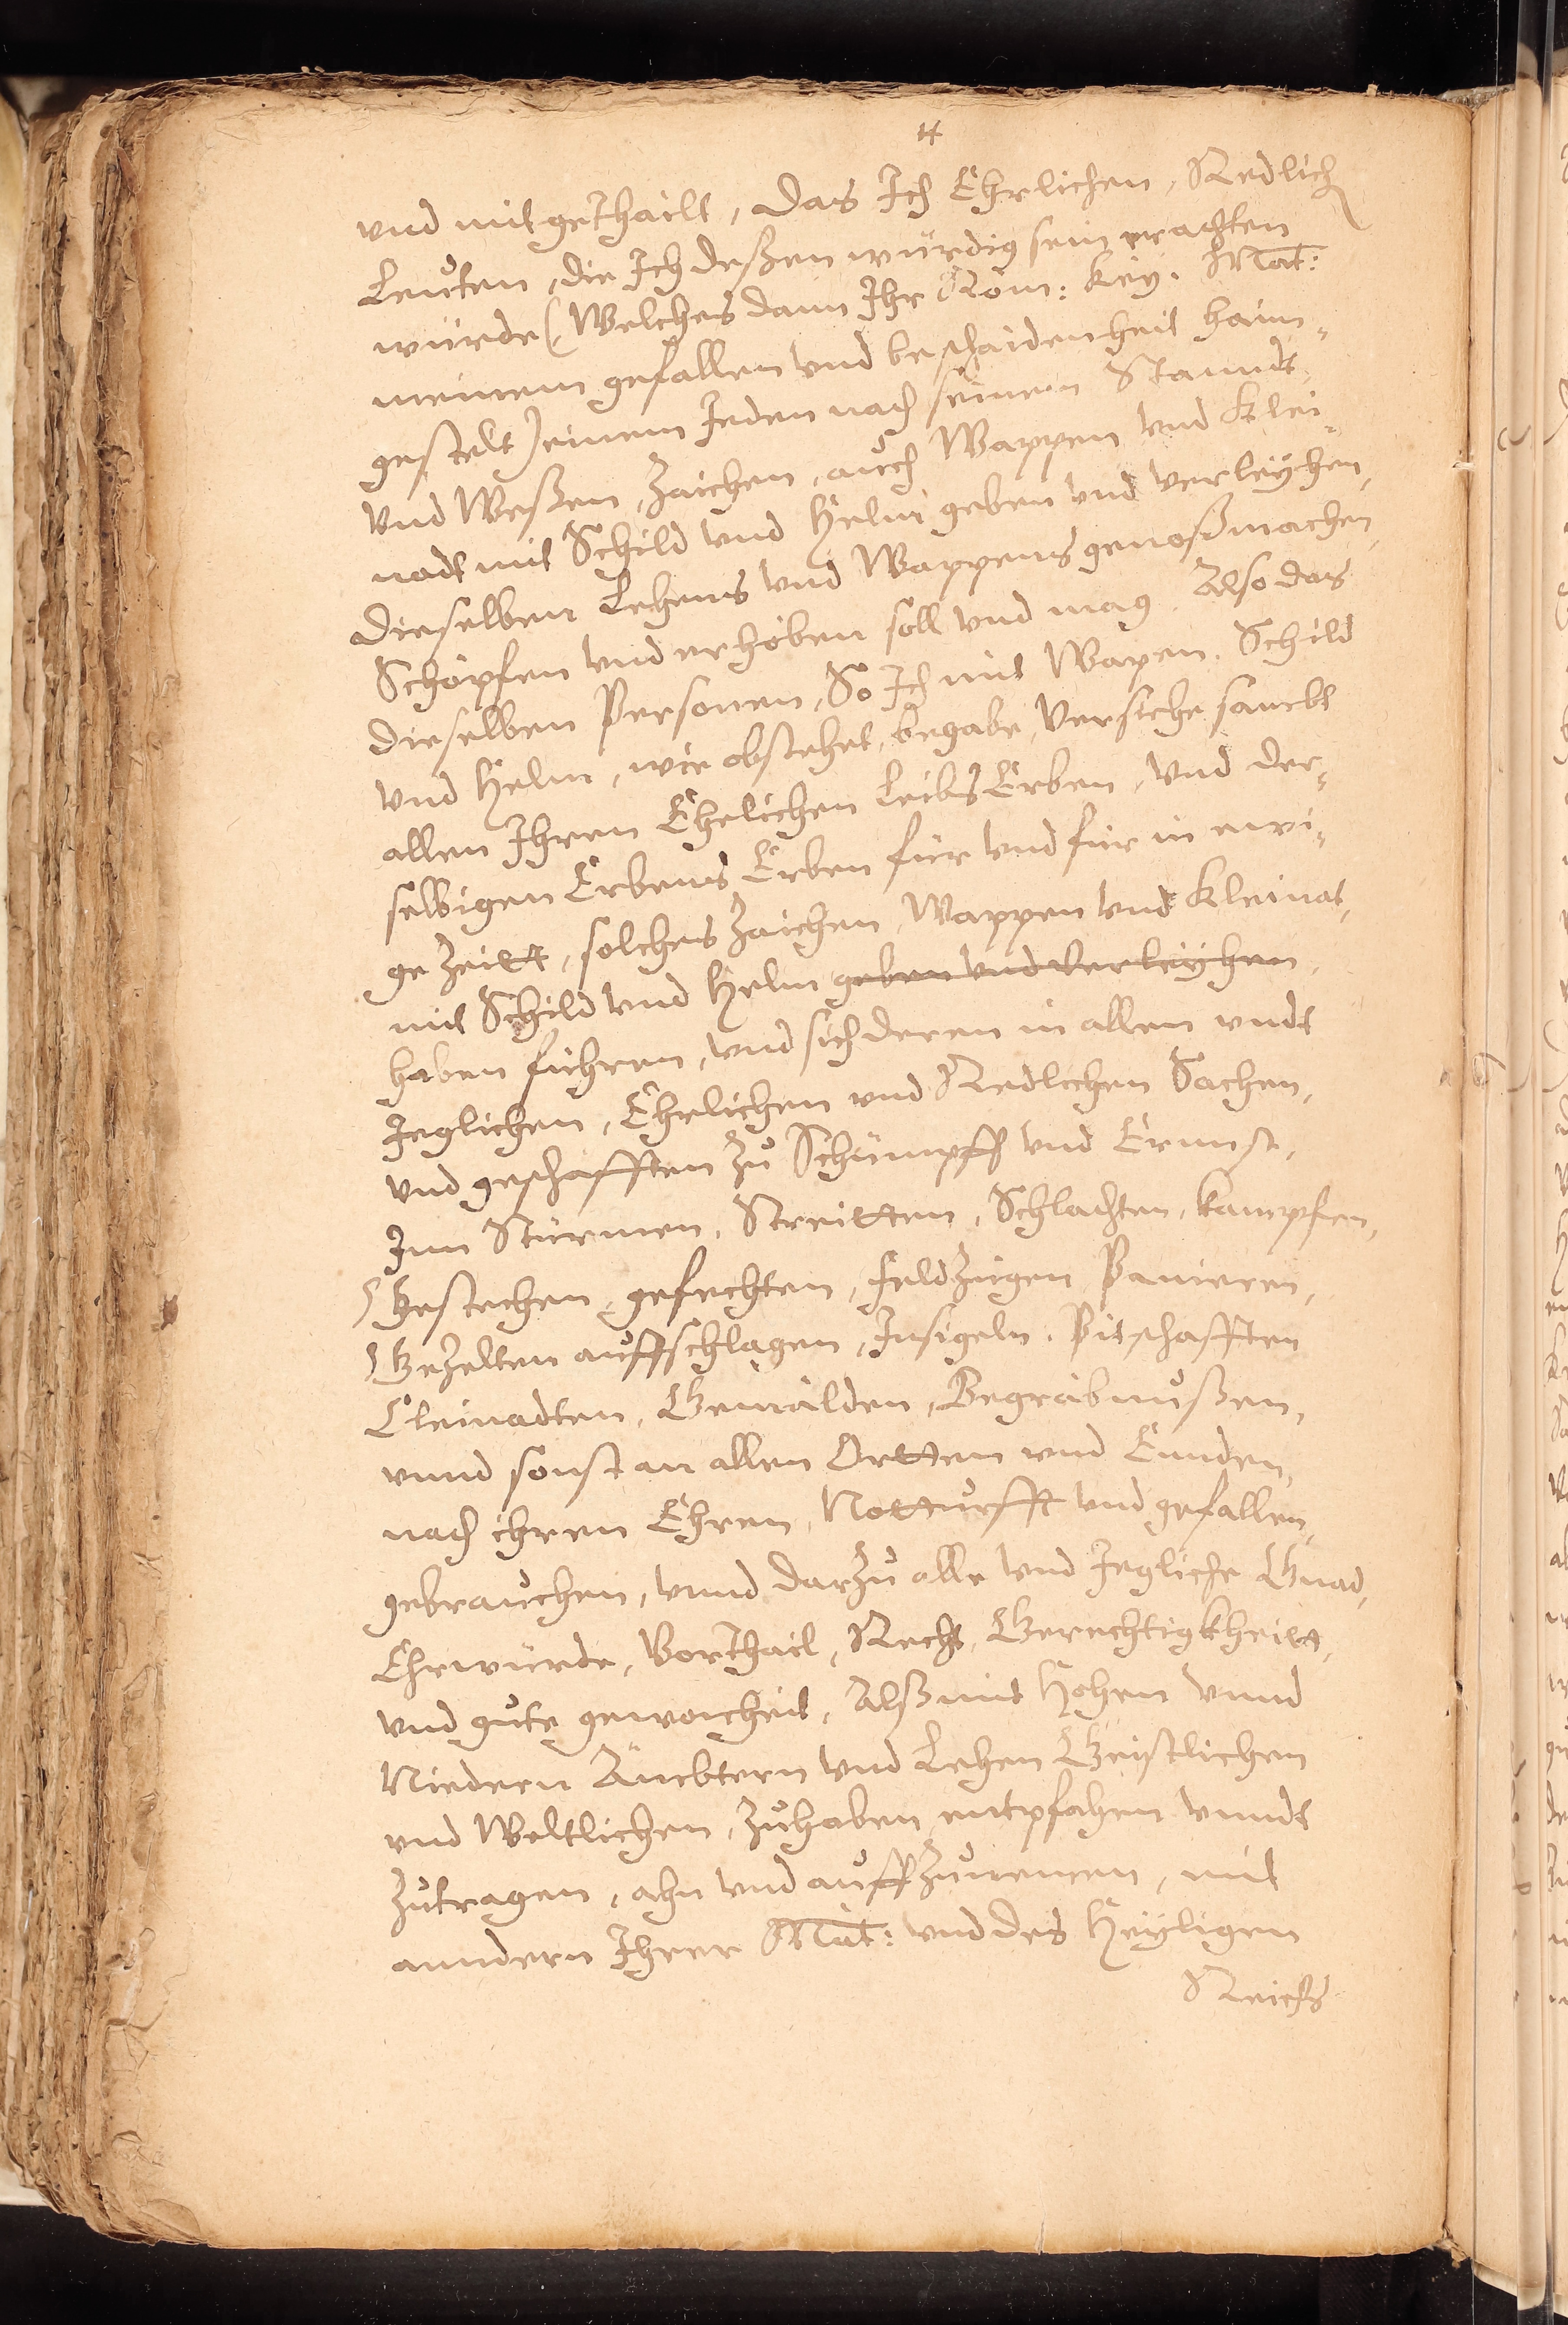 und mitgethailt, das Ich Ehrlichen, Redlich
Leuten, die Ich deßen würdig sein erachten
würde (Welches dann Ihr Röm: Key. Mat:
meinem gefallen und beschaidenheit haim-
gestelt) einem Jeden nach seinem Stanndt
und Weßen, Zaichen, auch Wappen und Klei-
nodt mit Schild und Helm geben und verleyhen,
dieselben Lehens und Wappens genoß machen,
Schöpfen und erhöben soll und mag. Also das
dieselben Personen, So Ich mit Wapen. Schild
und Helm, wie obstehet, begabe, Versiche sambt
allen Ihren Ehelichen LeibsErben, und der-
selbigen Erbens Erben für und für in ewi-
ge Zeitt, solches Zaichen, Wappen und Kleinat,
mit Schild und Helm geben und verleyhen,
haben führen, und sich deren in allen undt
Jeglichen, Ehrlichen und Redlichen Sachen,
und geschafften zu Schümpff und Ernnst,
Inn Stürmen, Streitten, Schlachten, kampfen,
Gestechen, gefechten, Feldzügen Panieren,
Gezelten auffschlagen, Insigeln, Pitschafften
Cleinadten, Gemälden, Begräbnußen,
unnd sonst an allen Ortten und Ennden,
nach ihren Ehren, Notturfft und gefallen,
gebrauchen, unnd darzu alle und Jegliche Gnad,
Ehrwürde, Vorthail, Recht, Gerechtigkheitt,
und gute gewonheit, Alß mit Hohen unnd
Niedern Ämbtern und Lehen Geistlichen
und Weltlichen, Zuhaben entpfahen unndt
Zutragen, ahn und auffzunemen, mit
anndern Ihrer Mat: und des Heyligen
Reichs